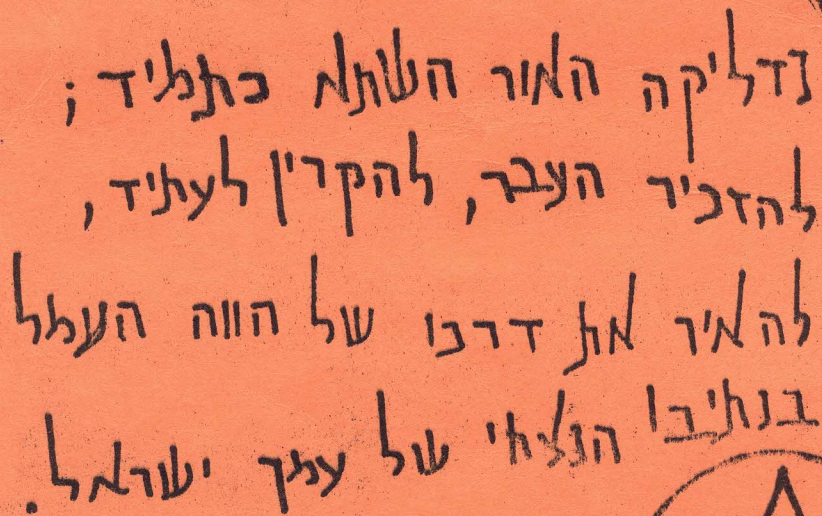 נדליקה האור השתא כתמיד ;
להזכיר העבר, להקרין לעתיד,
להאיר את דרכו של הווה העמל
בנתיבו הנצחי של עמך ישראל.